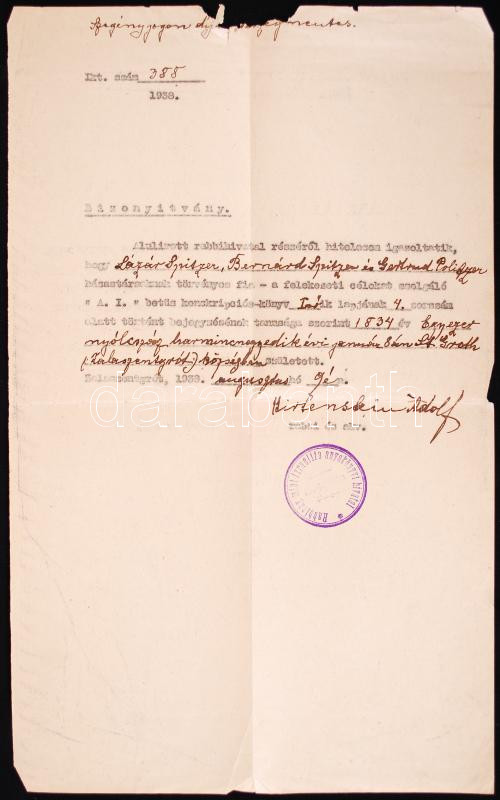 Szegényjogon
Ikt. szám 388
1938.
Bizonyitvány.
Alulirott rabbihivatal részéről hitelesen igazoltatik,
hogy Lázár Spitzer, Bernárd Spitzer és Gertrud Politzer
házastársaknak törvényes fia - a felekezeti célokat szolgáló
" A. I. " betüs konskripciós-könyv I-ső ik lapjának 4. sorszám
alatt történt bejegyzésének tanusága szerint 1834 év Egyezer
nyolcszáz harmincnegyedik évi január 8án St. Groth
(Zalaszentgrót) községben született.
Zalaszentgrót, 1938. augusztus hó 9én.
Hirtenstein Adolf
rabbi és akv.
Rabbiság mint izraelita anyakönyvi hivatal
darabanth